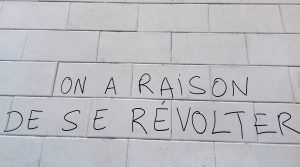 ON A RAiSON
DE SE RÉVOLTER